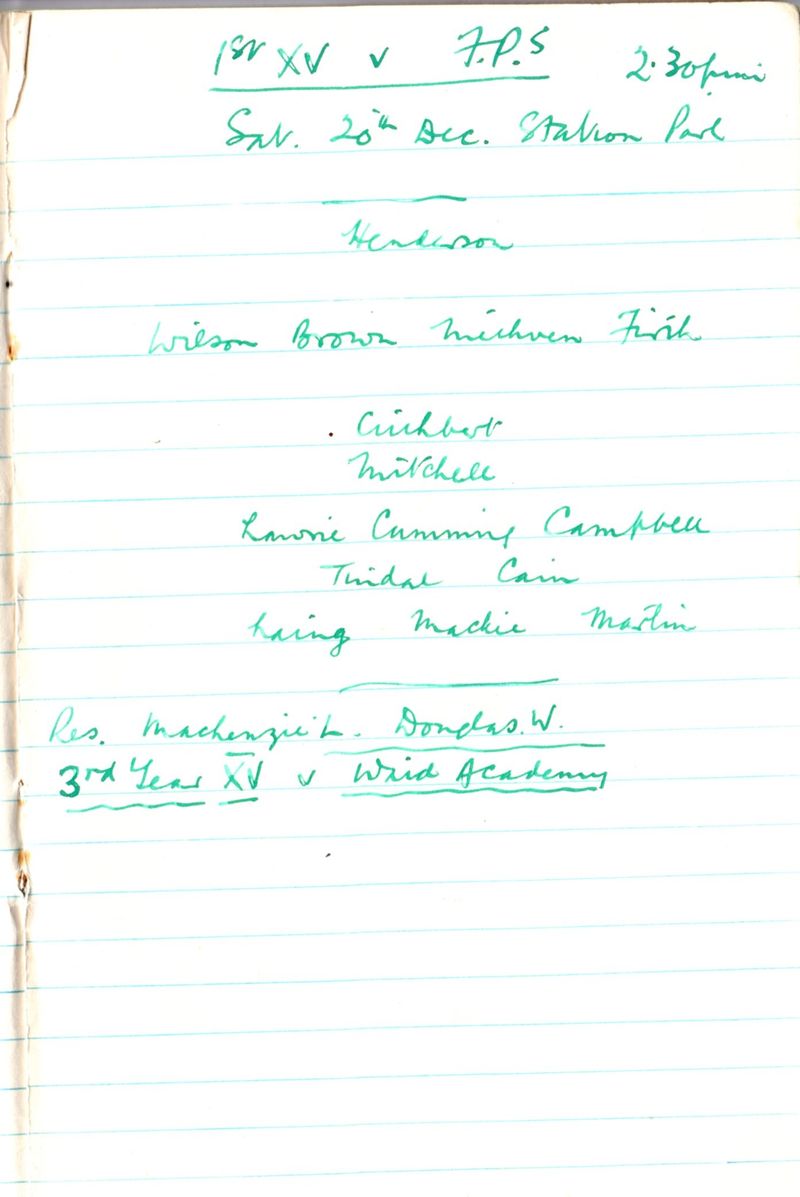 1st XV v F.P.S 2.30pm
Sat. 20th Dec. Station Park
Henderson
Wilson Brown Methven Firth
Cuthbert
Mitchell
Lawrie Cumming Campbell
Tindal Cain
Laing Mackie Martin
Res. Mackenzie L. Douglas. W.
3rd Year XV v Waid Academy